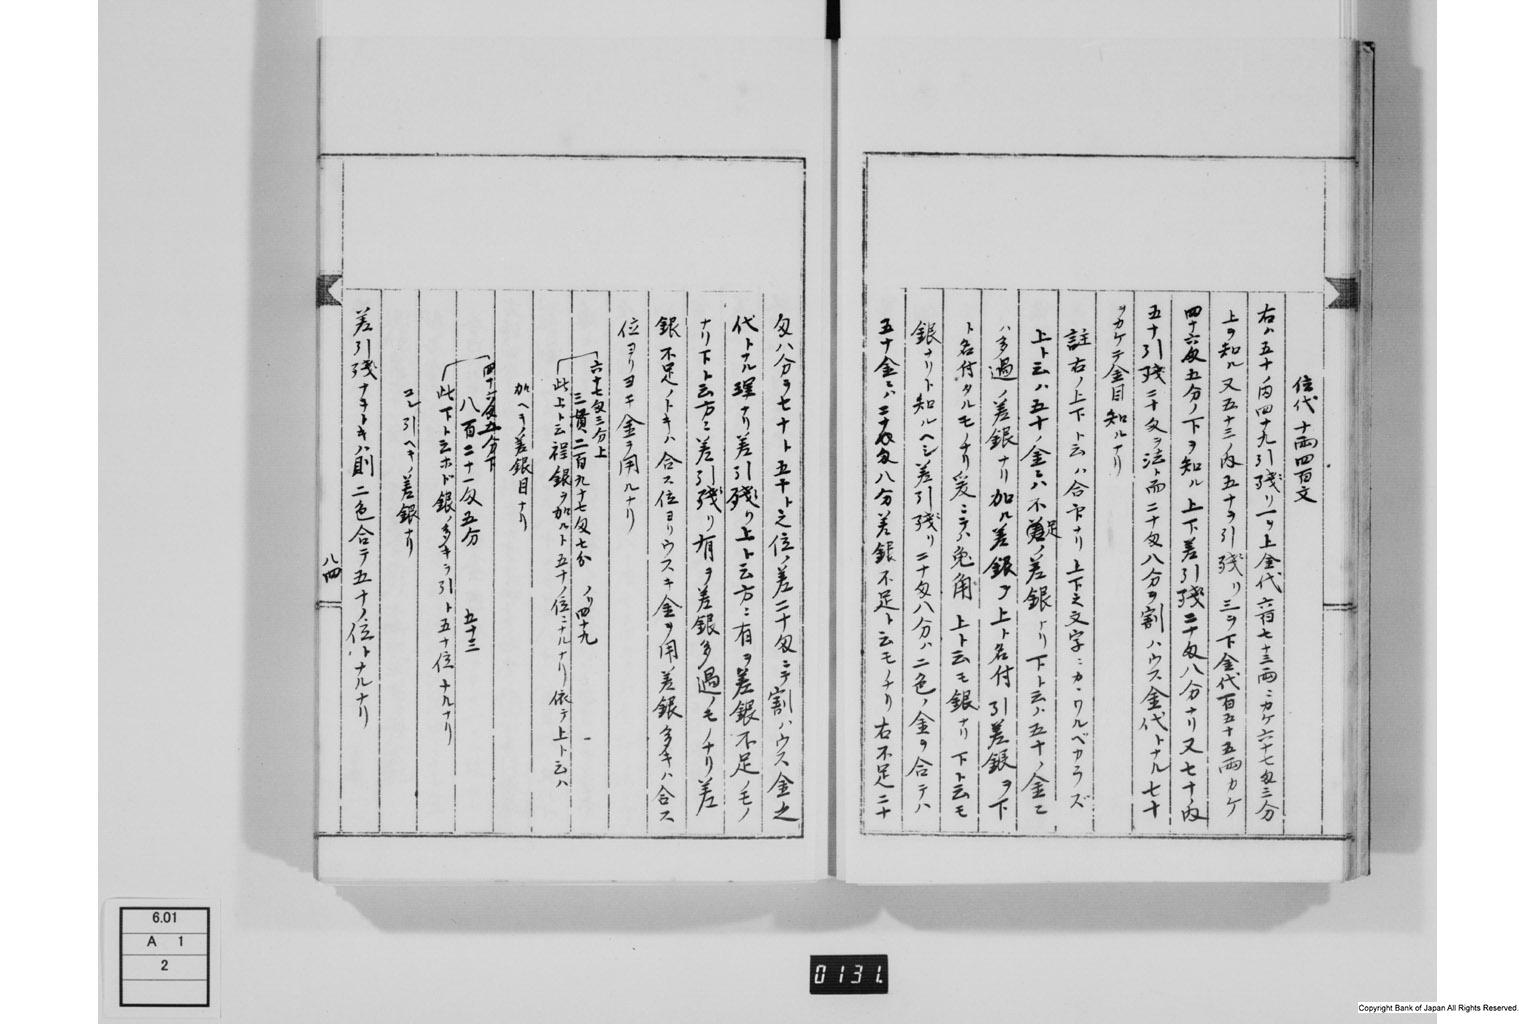 位代十両四百文
右ハ五十ノ内四十九引残リ一ツ上金代六百七十三両ニカケ六十七匁三分
上ヲ知ル又五十三ノ内五十ヲ引残リ三ツ下金代百五十五両カケ
四十六匁五分ノ下ヲ知ル上下差引残二十匁八分ナリ又七十ノ内
五十引残二十匁ヲ法ト而二十匁八分ヲ割ハウス金代トナル七十
ヲカケテ金目知ルナリ
註右ノ上下ト云ハ合下ナリ上下之文字ニカヽワルベカラズ
上ト云ハ五十ノ金ニハ不足ノ差銀ナリ下ト云ハ五十ノ金ニ
ハ多過ノ差銀ナリ加ル差銀ヲ上ト名付引差銀ヲ下
ト名付タルモノナリ爰ニテハ兎角上ト云モ銀ナリ下ト云モ
銀ナリト知ルヘシ差引残リ二十匁八分ハ二色ノ金ヲ合テハ
五十金ニハ二十匁八分差銀不足ト云モノナリ右不足二十
匁八分ヲ七十ト五十ト之位ノ差二十匁ニテ割ハウス金之
代トナル理ナリ差引残リ上ト云方ニ有ヲ差銀不足ノモノ
ナリ下ト云方ニ差引残リ有ヲ差銀多過ノモノナリ差
銀不足ノトキハ合ス位ヨリウスキ金ヲ用差銀多キハ合ス
位ヨリヨキ金ヲ用ルナリ
六十七匁三分上
三貫二百九十七匁七分 ノリ四十九
此上ト云程銀ヲ加ルト五十ノ位ニナルナリ依テ上ト云ハ
加ヘキノ差銀目ナリ
四十六匁五分下
八百二十一匁五分 五十三
此下ト云ホド銀ノ多キヲ引ト五十位ナルナリ
コレ引ヘキノ差銀ナリ
差引残ナキトキハ則二色合テ五十ノ位トナルナリ
八四
6.01
A 1
2
0131.
Copyright Bank of Japan All Rights Reserved.